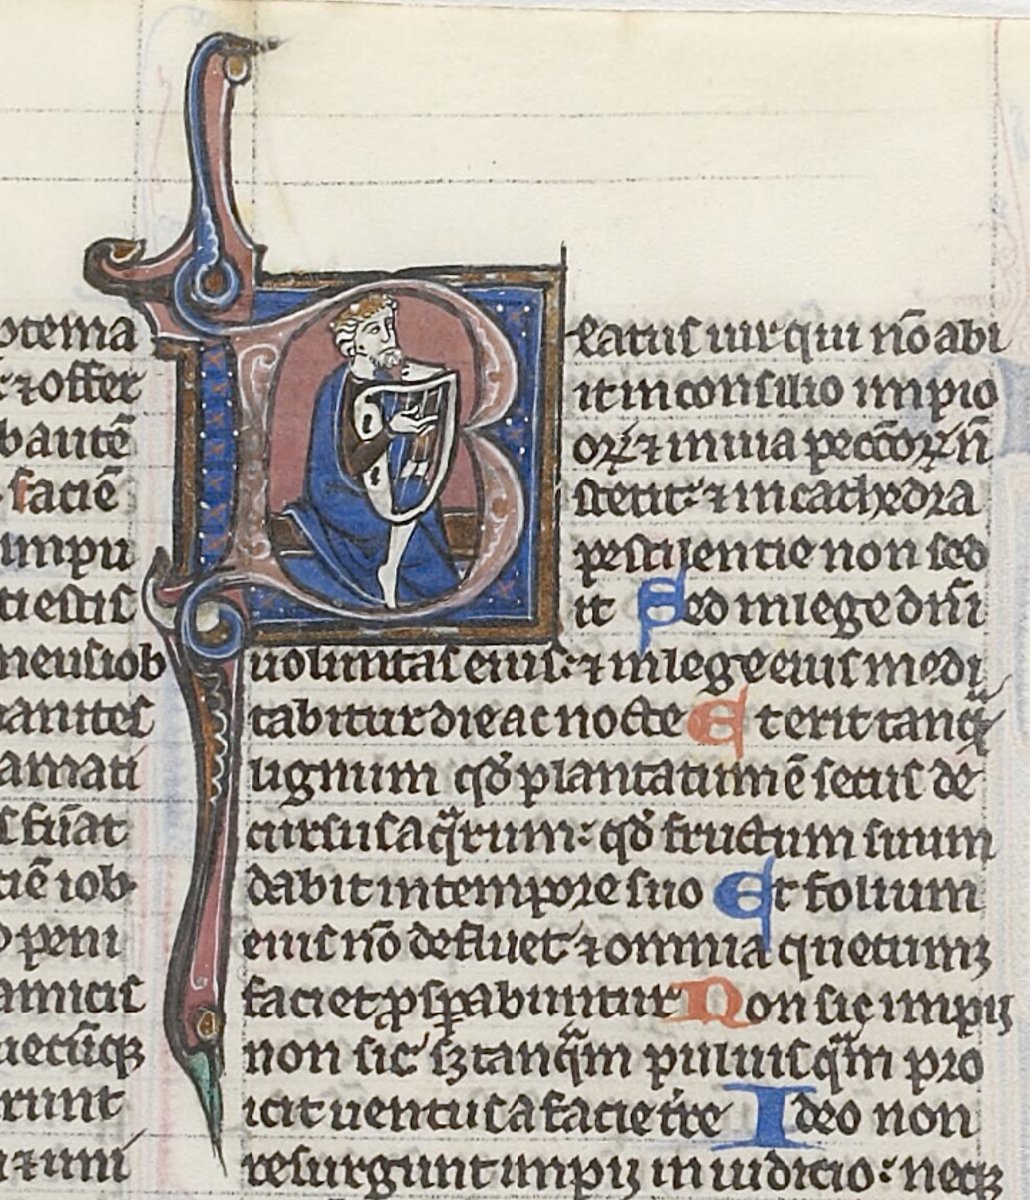 ptema
⁊ offer
bautē
faciē
impu
ti estis
meus iob
manites
amati
s fūat
ciē iob
o peni
amicis
uecūqꝫ
runt
⁊ uni
Beatus uir qui nō abi
it in consilio impio
oꝝ ⁊ in uia peccōꝝ ñ
stetit: ⁊ in cathedra
pestilentie non sed
it Sed in lege dñi
uoluntas eius: ⁊ in lege eius medi
tabitur die ac nocte Et erit tanqͣ
lignum qđ plantatum ē secus de
cursus aqͣrum: qđ fructum suum
dabit in tempore suo Et folium
eius nō defluet ⁊ omnia quecumꝫ
faciet ꝓsꝑabuntur Non sic impij
non sic sꝫ tanqͣm puluis qͣm pro
icit uentus a facie t̄re Ideo non
resurgunt impij in iudicio: neqꝫ